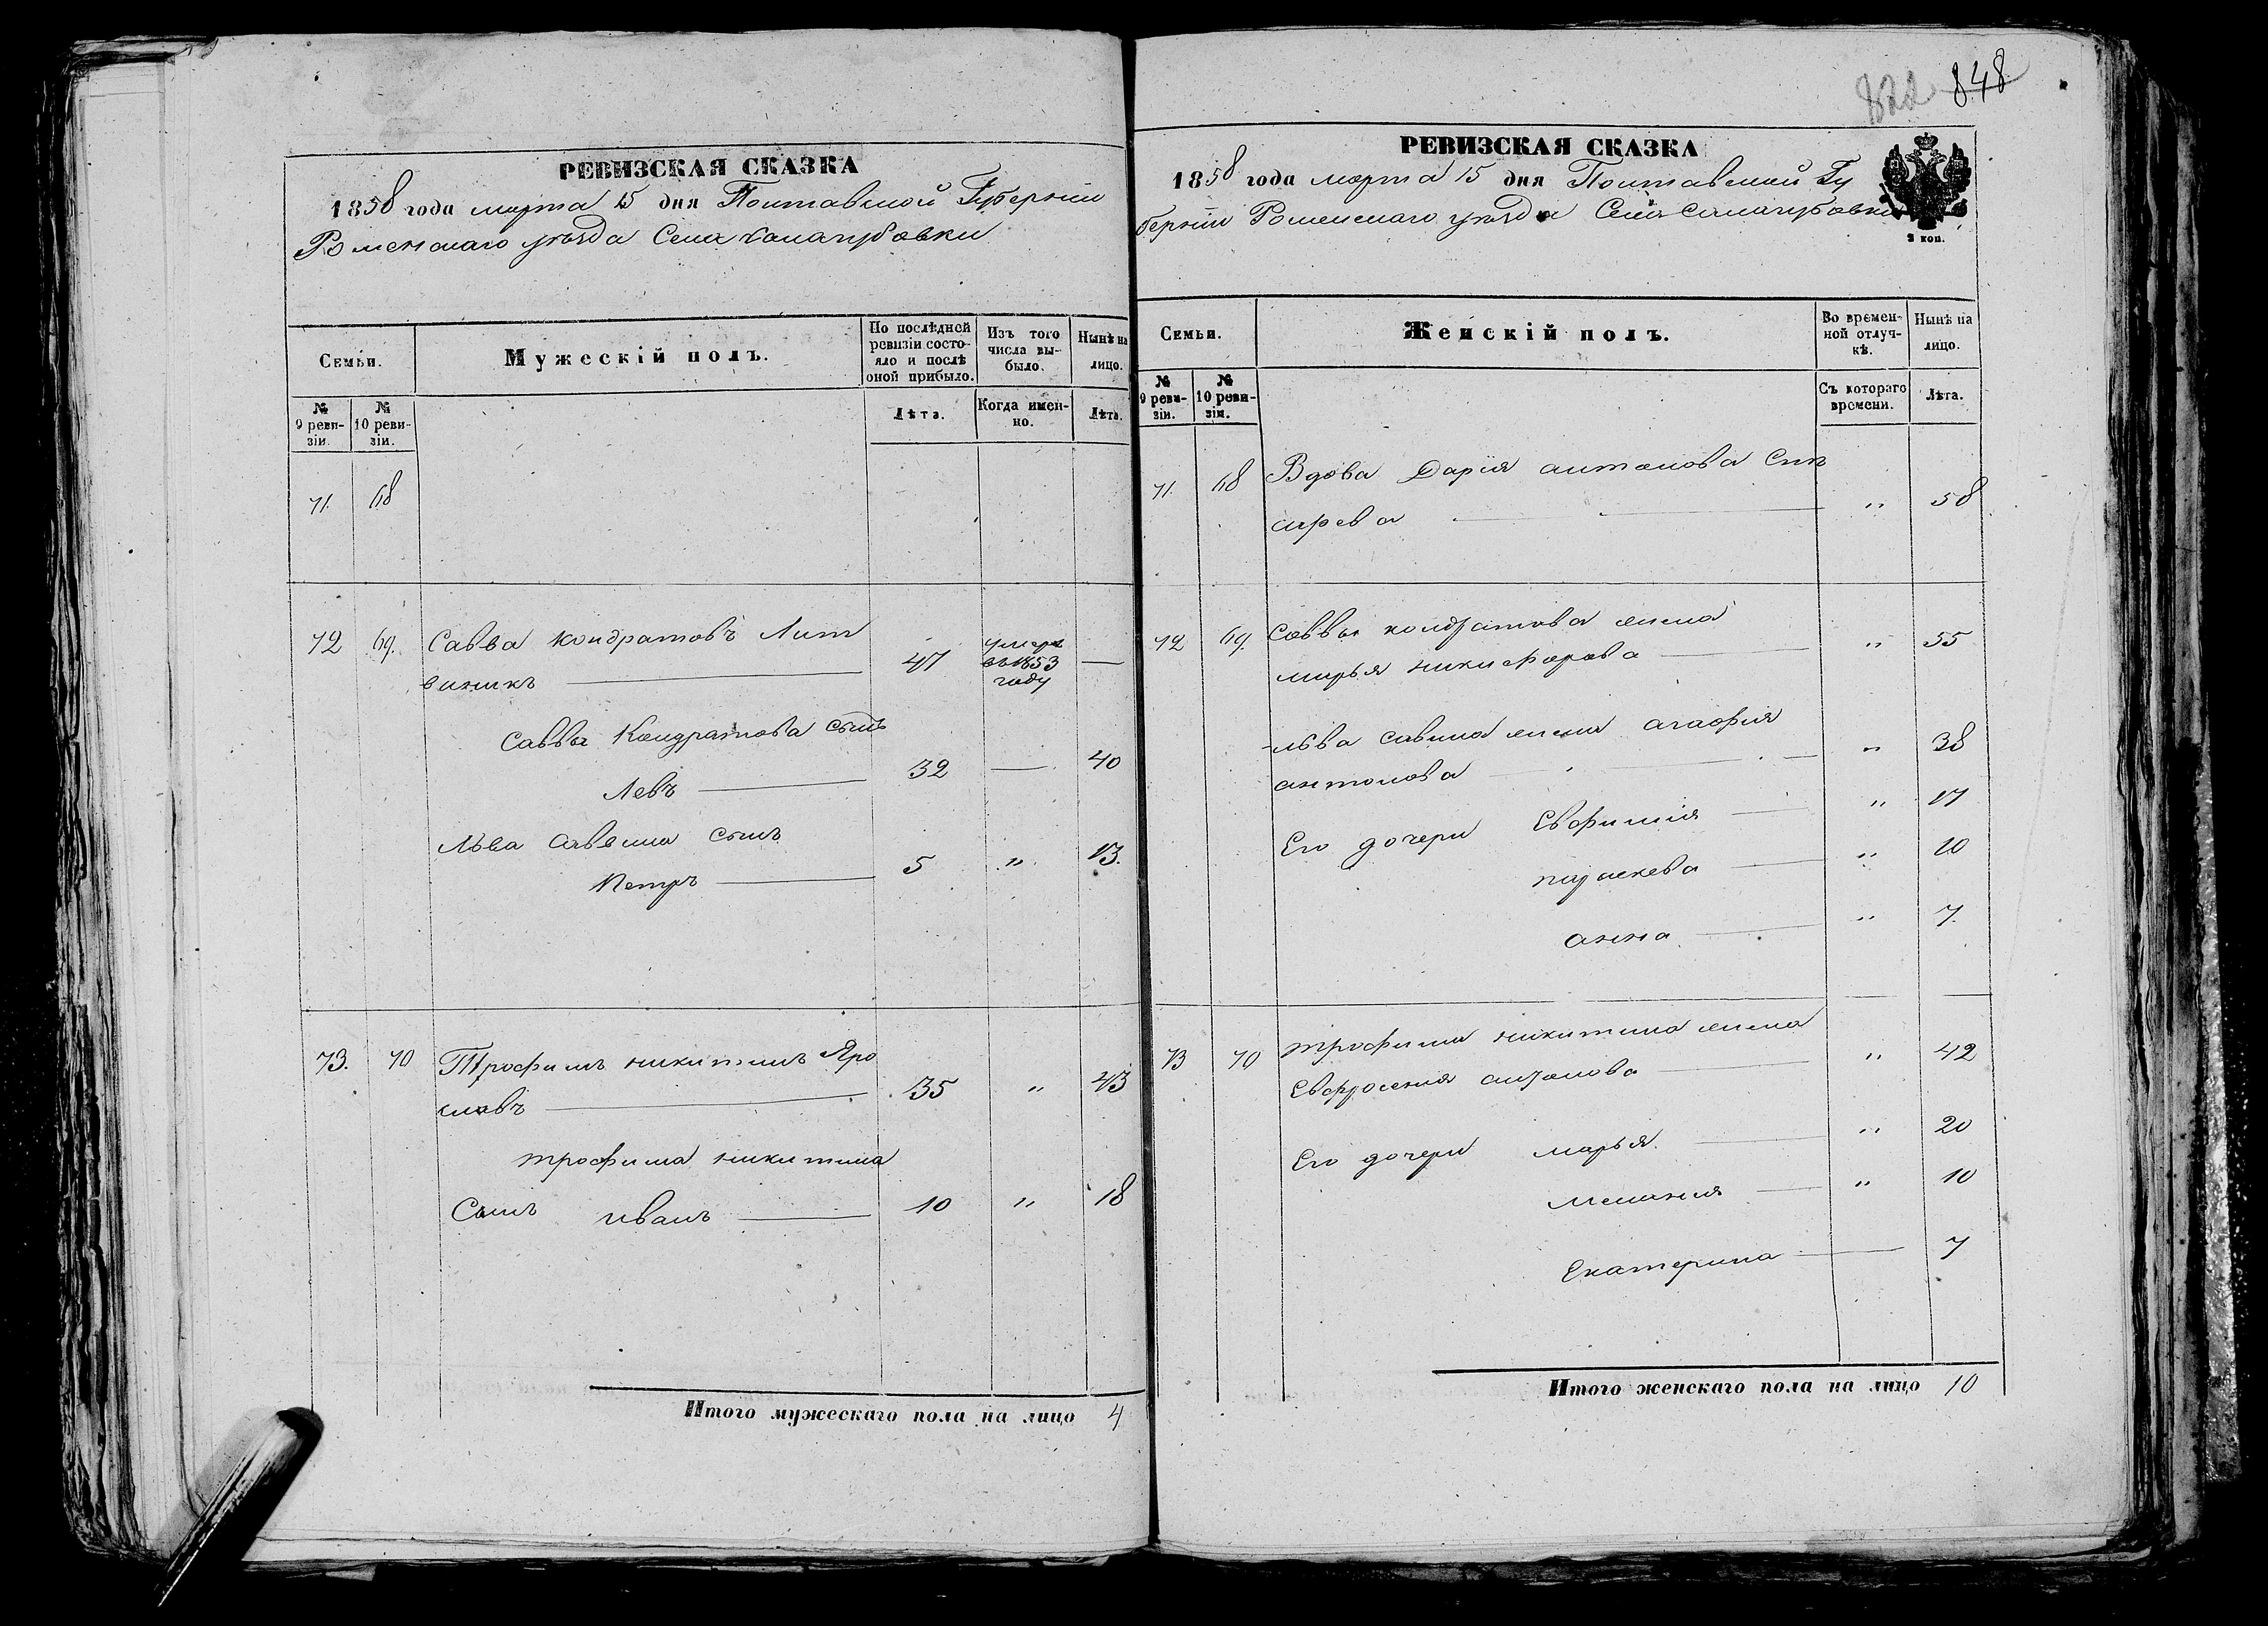 822 848
РЕВИЗСКАЯ СКАЗКА
1858 года марта 15 дня Полтавской Губернiи
Роменскаго уѣзда Села Салагубовки
Семьи.
Мужескiй полъ.
По послѣдней ревизiи состояло и послѣ оной прибыло.
Изъ того числа выбыло.
Нынѣ на лицо.
№ 9 ревизiи.
№ 10 ревизiи.
Лѣта.
Когда именно.
Лѣта.
71. 68
72 69. Савва кондратовъ Лит
виникъ 47 умеръ въ 1853 году —
Саввы Кондратова сынъ
Левъ 32 — 40
Льва Саввина сынъ
Петръ 5 " 13.
73. 70 Трофимъ никитинъ Яро
славъ 35 " 43
трофима никитина
Сынъ иванъ 10 " 18
Итого мужескаго пола на лицо 4
РЕВИЗСКАЯ СКАЗКА
1858 года марта 15 дня Полтавской Гу
бернiи Роменскаго уѣзда Села Салагубовки
2 коп.
Семьи.
Женскiй полъ.
Во временной отлучкѣ.
Нынѣ на лицо.
№ 9 ревизiи.
№ 10 ревизiи.
Съ котораго времени.
Лѣта.
71. 68 Вдова Дарiя антонова
" 58
72 69. Саввы кондратова жена
марья никифорова " 55
льва савина жена агафия
антонова " 38
Его дочери Евфимiя " 17
параскева " 10
анна " 7.
73 70 трофима никитина жена
Евфросения антонова " 42
Его дочери марья " 20
мелания " 10
Екатерина 7
Итого женскаго пола на лицо 10